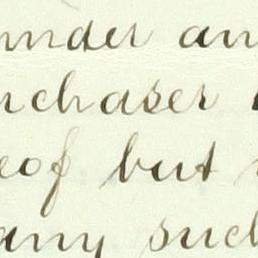 under an
rchaser
eof but
any such